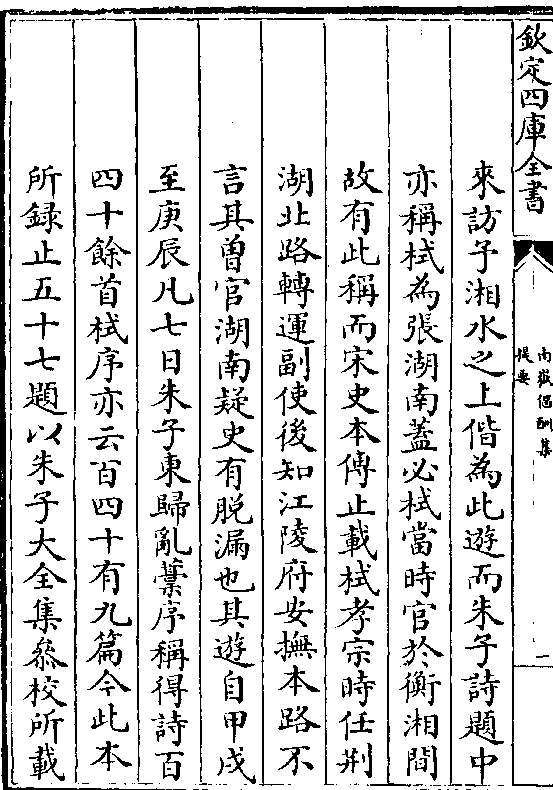 欽定四庫全書
南嶽倡酬集
提要
一
來訪予湘水之上偕為此遊而朱子詩題中
亦稱栻為張湖南蓋必栻當時官於衡湘間
故有此稱而宋史本傳止載栻孝宗時任荆
湖北路轉運副使後知江陵府安撫本路不
言其曽官湖南疑史有脱漏也其遊自甲戌
至庚辰凡七日朱子東歸亂藁序稱得詩百
四十餘首栻序亦云百四十有九篇今此本
所録止五十七題以朱子大全集叅校所載